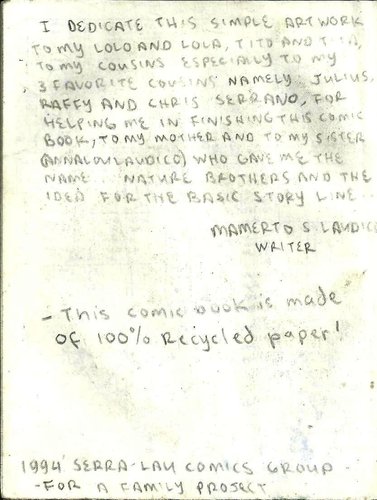 I DEDICATE THIS SIMPLE ARTWORK
TO MY LOLO AND LOLA, TITO AND TITA,
TO MY COUSINS ESPECIALLY TO MY
3 FAVORITE COUSINS NAMELY: JULIUS,
RAFFY AND CHRIS SERRANO, FOR
HELPING ME IN FINISHING THIS COMIC
BOOK, TO MY MOTHER AND TO MY SISTER
(ANNALOU LAUDICO) WHO GAVE ME THE
NAME.. NATURE BROTHERS AND THE
IDEA FOR THE BASIC STORY LINE...
MAMERTO S. LAUDICO
WRITER
- This comic book is made
of 100% Recycled paper!
1994 SERRA-LAU COMICS GROUP -
-FOR A FAMILY PROJECT